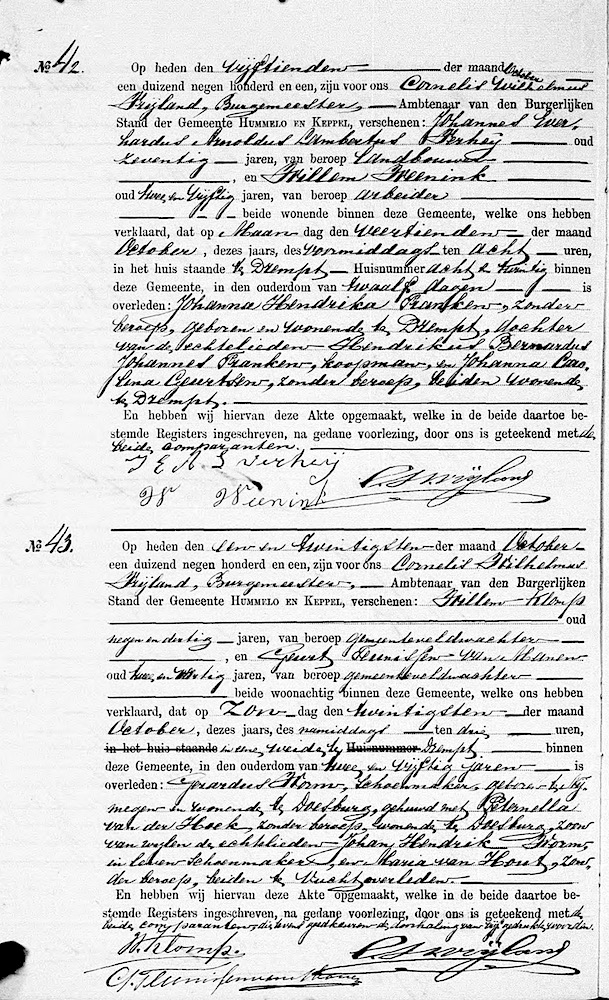 No 42. Op heden den vijftienden der maand October
een duizend negen honderd en een, zijn voor ons Cornelis Wilhelmus
Vrijland, Burgemeester, Ambtenaar van den Burgerlijken
Stand der Gemeente HUMMELO EN KEPPEL, verschenen: Johannes Ever-
hardus Arnoldus Lambertus Verheij oud
zeventig jaren, van beroep landbouwer
, en Willem Weenink
oud twee en vijftig jaren, van beroep arbeider
beide wonende binnen deze Gemeente, welke ons hebben
verklaard, dat op Maan dag den veertienden der maand
October, dezes jaars, des voormiddags ten acht uren,
in het huis staande te Drempt Huisnummer acht & twintig binnen
deze Gemeente, in den ouderdom van twaalf dagen is
overleden: Johanna Hendrika Franken, zonder
beroep, geboren en wonende te Drempt, dochter
van de echtelieden Hendrikus Bernardus
Johannes Franken, koopman, en Johanna Caro-
lina Geurtsen, zonder beroep, beiden wonende
te Drempt.
En hebben wij hiervan deze Akte opgemaakt, welke in de beide daartoe be-
stemde Registers ingeschreven, na gedane voorlezing, door ons is geteekend met de
beide comparanten.
J E A L Verheij
W Weenink C W Vrijland
No 43. Op heden den een en twintigsten der maand October
een duizend negen honderd en een, zijn voor ons Cornelis Wilhelmus
Vrijland, Burgemeester, Ambtenaar van den Burgerlijken
Stand der Gemeente HUMMELO EN KEPPEL, verschenen: Willem Klomp
oud
negen en dertig jaren, van beroep gemeenteveldwachter
, en Geurt Teunissen van Manen
oud twee en veertig jaren, van beroep gemeenteveldwachter
beide woonachtig binnen deze Gemeente, welke ons hebben
verklaard, dat op Zon dag den twintigsten der maand
October, dezes jaars, des namiddags ten drie uren,
in het huis staande in eene weide te Huisnummer Drempt binnen
deze Gemeente, in den ouderdom van twee en vijftig jaren is
overleden: Gerardus Worm, schoenmaker, geboren te Nij-
megen en wonende te Doesburg, gehuwd met Peternella
van der Hoek, zonder beroep, wonende te Doesburg, zoon
van wijlen de echtelieden Johan Hendrik Worm,
in leven schoenmaker, en Maria van Hout, zon-
der beroep, beiden te Vucht overleden.
En hebben wij hiervan deze Akte opgemaakt, welke in de beide daartoe be-
stemde Registers ingeschreven, na gedane voorlezing, door ons is geteekend met de
beide comparanten, die tevens goedkeuren de doorhaling van vijf gedrukte woorden.
W. Klomp. C W Vrijland
G. Teunissen van Manen